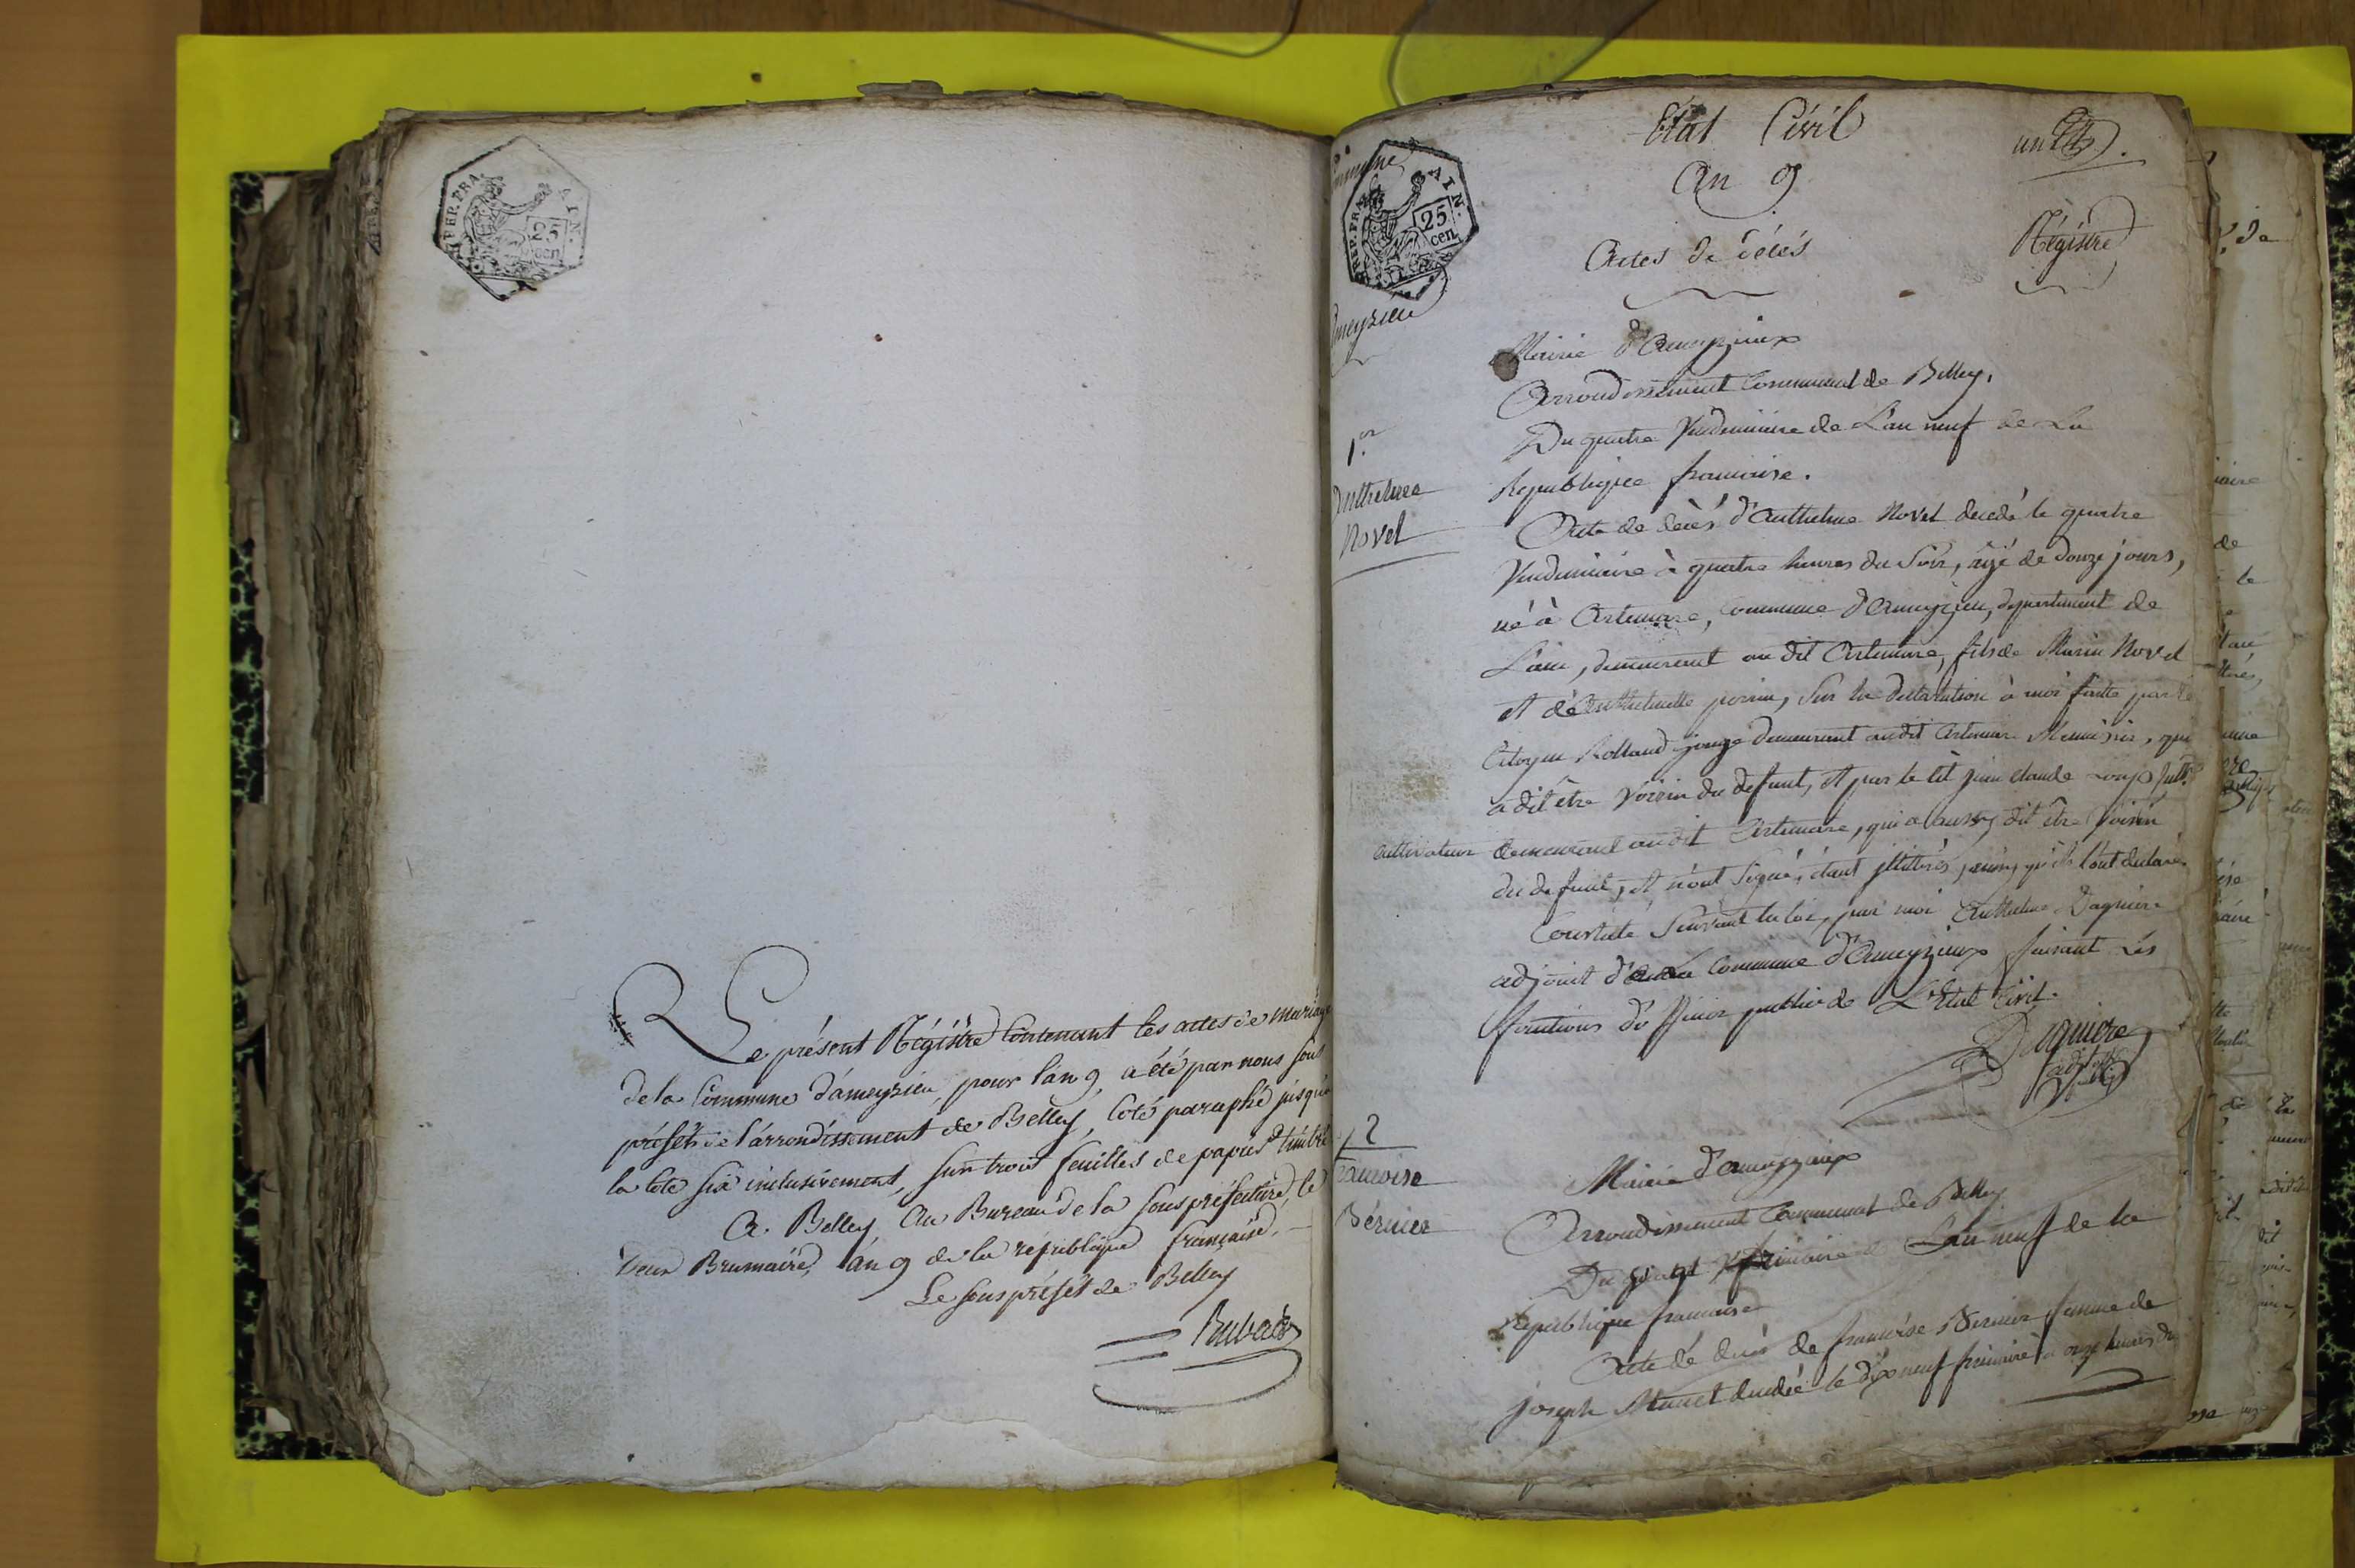 REP. FRA. AIN.
25
cen
Le présent Régistre Contenant les actes de mariage
de la Commune d'ameysieu, pour l'an 9, a été par nous sous
préfét de l'arrondissement de Belley, Coté paraphé jusqu'à
la cote six inclusivement, sur trois feuilles de papier timbré
A Belley Au Bureau de la sous préfecture, le
deux Brumaire, an 9 de la république française.
Le sous préfét de Belley
Rubat
REP. FRA. AIN.
25
cen
Etat Civil
An 9
Actes de décés
un
Régistre
ameyzieu
Mairie d'Ameyzieux
Arrondissement Communal de Belley,
Du quatre Vendemiaire de L'an neuf de La
Republique francaise.
1.er
Anthelme
Novel
Acte de décès d'Anthelme Novel decedé le quatre
Vendemiaire à quatre heures du Soir, âgé de douze jours,
né à Artemare, Commune d'Ameyzieu, departement de
L'ain, demeurant au dit Artemare, fils de Marin Novel
et de Anthelmette perrin, Sur la declaration à moi faite par le
Citoyen Rolland demeurant au dit Artemare Menuisier, qui
a dit être Voisin du defunt, et par le Cit jean claude
cultivateur demeurant au dit Artemare, qui a aussy dit être Voisin
du defunt, et n'ont Signé, étant illitérés, ainsy qu'ils l'ont declaré.
Constaté Suivant la loi, par moi Anthelme Dagniere
adjoint de la Commune d'Ameyzieux faisant Les
fonctions d'officier public de L'Etat Civil.
Dagniere
adjoint
2
francoise
Bernier
Mairie d'Ameyzieux
Arrondissement Communal de Belley
Du vingt frimaire L'an neuf de la
Republique francaise
Acte de décès de francoise Bernier femme de
joseph decedée le dix neuf frimaire à onze heures du